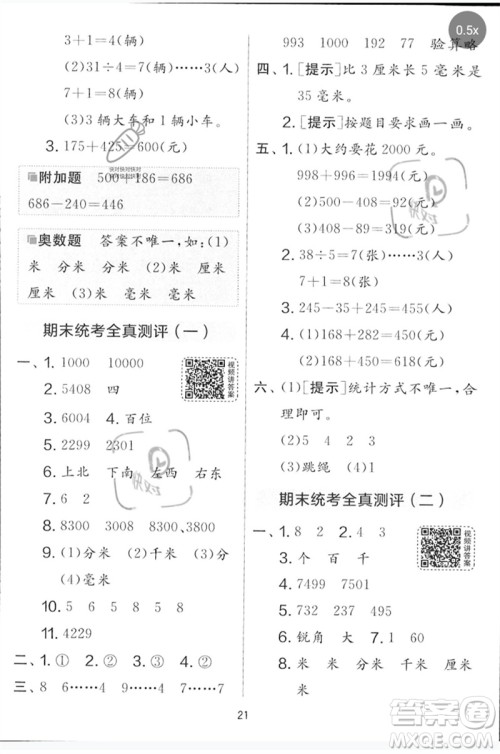 0.5x
3+1=4(辆)
(2)31÷4=7(辆)……3(人)
7+1=8(辆)
(3)3辆大车和1辆小车。
3. 175+425=600(元)
附加题 500+186=686
686-240=446
奥数题 答案不唯一,如:(1)
米 分米 分米 (2)米 厘米
厘米 (3)厘米 毫米 毫米
期末统考全真测评(一)
一、1. 1000 10000
2. 5408 四
3. 60 27 4. 百位
5. 2299 2301
6. 上北 下南 左西 右东
7. 6 2
8. 8300 8008 8300,3800
9. (1)分米 (2)千米 (3)米
(4)毫米
10. 5 6 5 8 5 8
11. 4229
二、1. ① 2. ① 3. ① 4. ②
三、8 6……6 9 4……7 9……7
视频讲答案
993 1000 192 77 验算略
四、1. [提示]比3厘米长5毫米是
35毫米。
2. [提示]按题目要求画一画。
五、1. (1)大约要花2000元。
998+996=1994(元)
(2)500-408=92(元)
(3)408-89=319(元)
2. 38÷5=7(张)……3(张)
7+1=8(张)
3. 345-245=100(元)
4. (1)168+282=450(元)
(2)168+164=332(元)
六、(1)[提示]统计方式不唯一,合
理即可。
(2)5 2 3
(3)跳绳 (4)1
期末统考全真测评(二)
一、1. 8 2 2. 4 3
3. 个 百 千
4. 7499 7501
5. 732 237 495
6. 锐角 大 7. 1 60
8. 米 厘米 千米 毫米
视频讲答案
21
答案圈
MXQE.COM